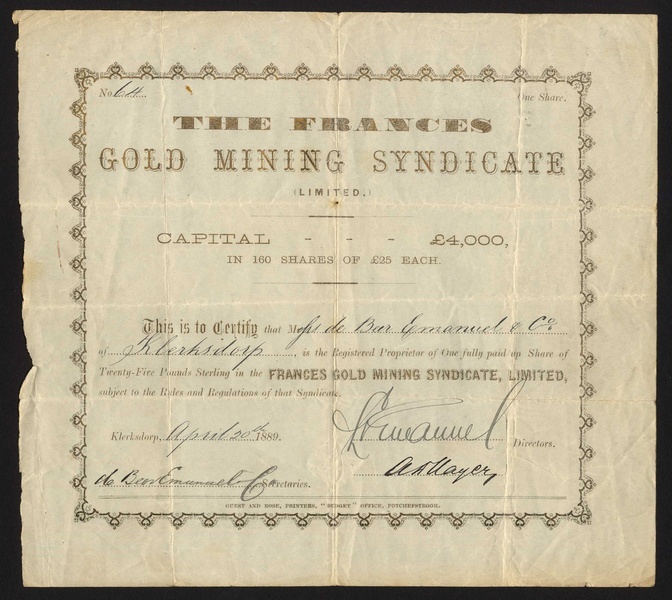 No. 64. One Share.
THE FRANCES
GOLD MINING SYNDICATE
(LIMITED.)
CAPITAL - - - £4,000,
IN 160 SHARES OF £25 EACH.
This is to Certify that Messrs de Beer Emanuel & Co
of Klerksdorp, is the Registered Proprietor of One fully paid up Share of
Twenty-Five Pounds Sterling in the FRANCES GOLD MINING SYNDICATE, LIMITED,
subject to the Rules and Regulations of that Syndicate.
Klerksdorp, April 20th 1889. Emanuel Directors.
de Beer Emanuel & Co Secretaries.
GUEST AND ROSE, PRINTERS, "BUDGET" OFFICE, POTCHEFSTROOM.